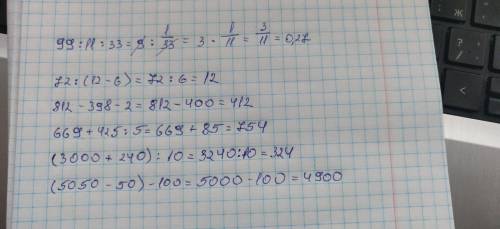 99 : 11 : 33 = 9 : 1/33 = 3 · 1/11 = 3/11 = 0,27
72 : (12 - 6) = 72 : 6 = 12
812 - 398 - 2 = 812 - 400 = 412
669 + 425 : 5 = 669 + 85 = 754
(3000 + 240) : 10 = 3240 : 10 = 324
(5050 - 50) - 100 = 5000 - 100 = 4900
Ж